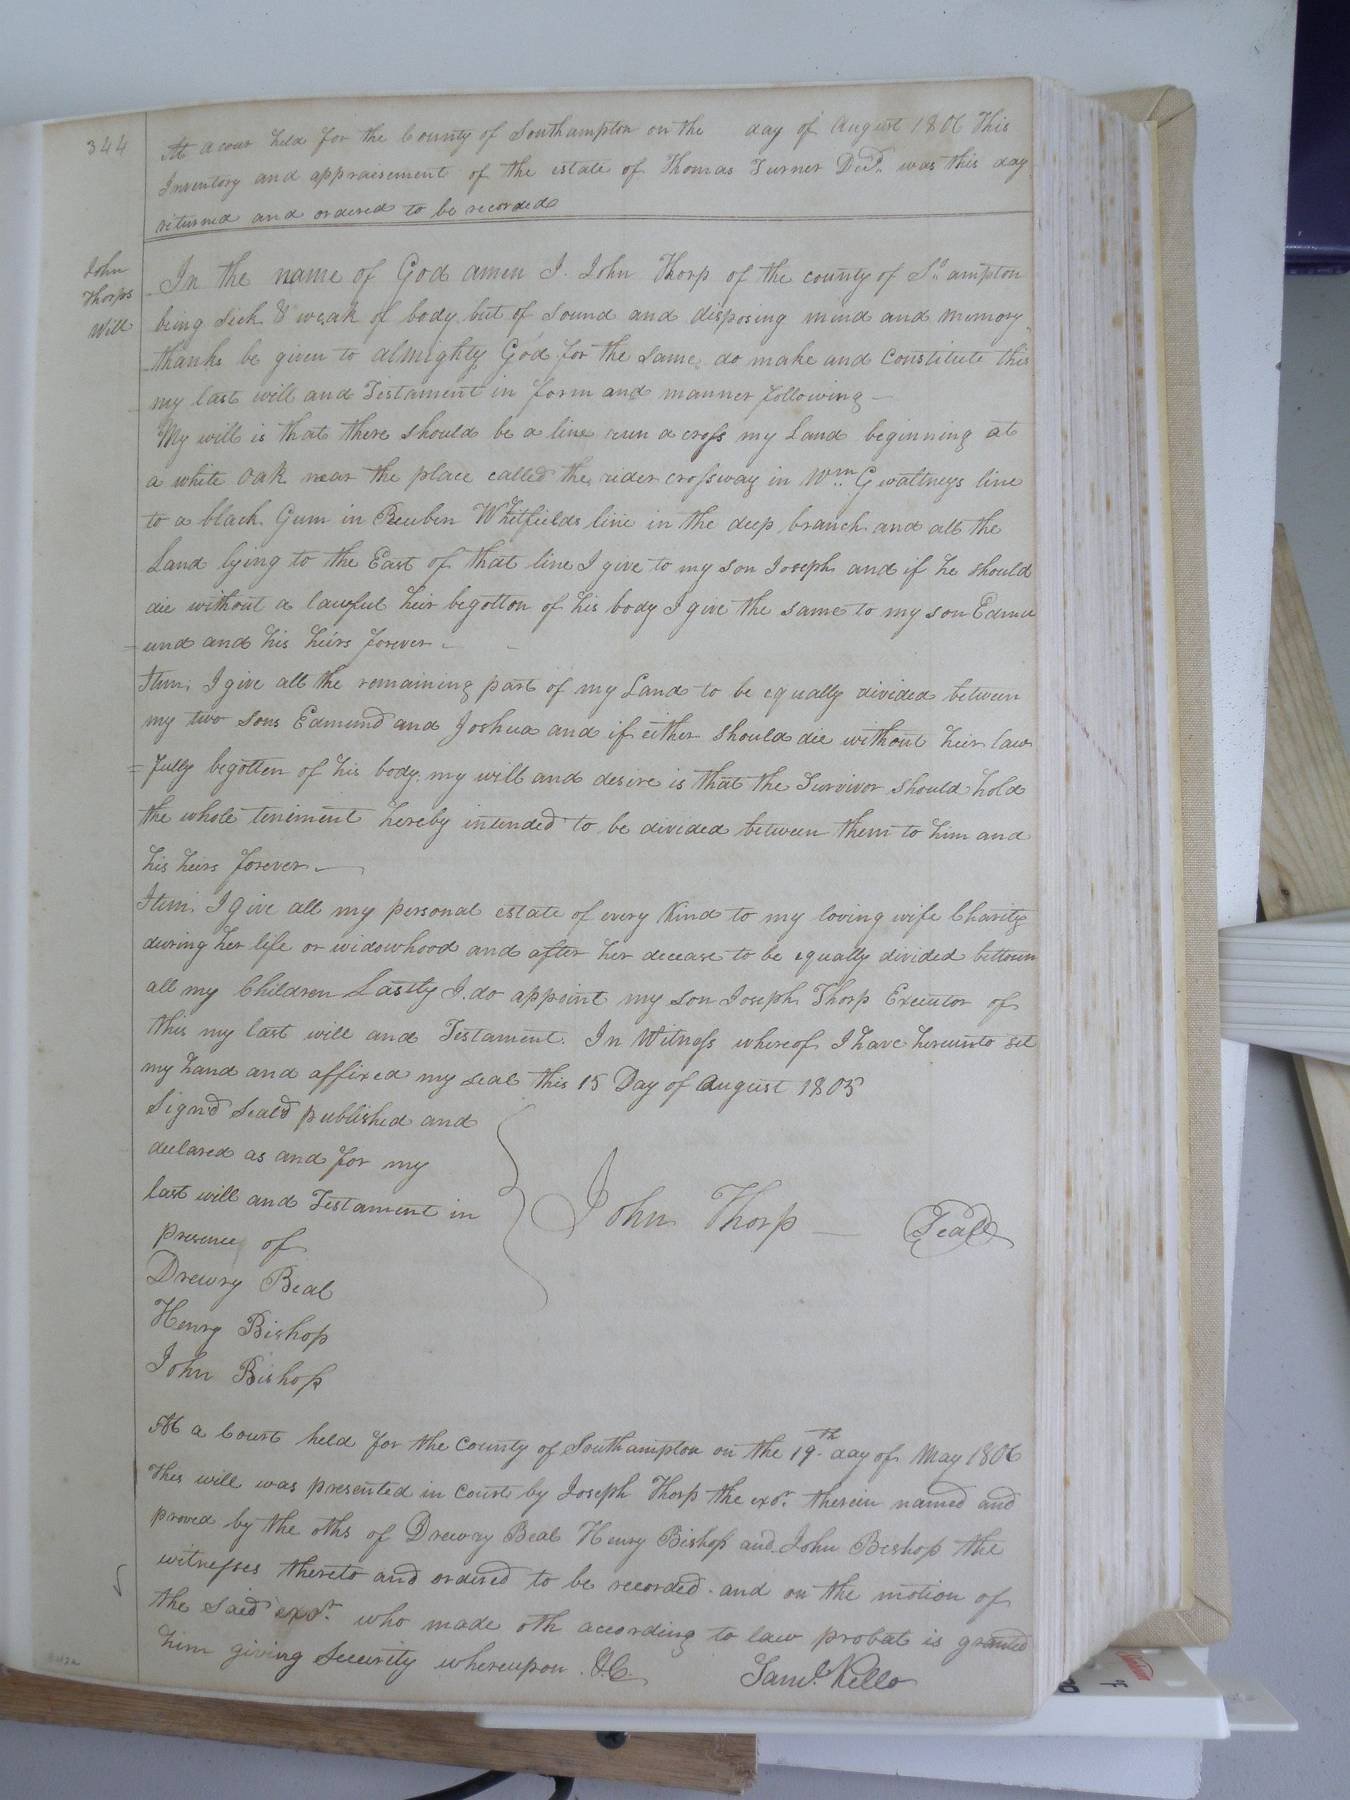 344
At a cour held for the County of Southampton on the day of August 1806 This
Inventory and appraisement of the estate of Thomas Turner Decd. was this day
returned and ordered to be recorded
John
Thorps
Will
In the name of God amen I. John Thorp of the county of So. ampton
being sick & weak of body but of sound and disposing mind and memory
thanks be given to almighty God for the same do make and constitute this
my last will and Testament in form and manner following –
My will is that there should be a line run a cross my Land beginning at
a white Oak near the place called the rider crossway in Wm. Gwaltneys line
to a black Gum in Reuben Whitfields line in the deep branch and all the
Land lying to the East of that line I give to my son Joseph and if he should
die without a lawful heir begotton of his body I give the same to my son Edmu
und and his heirs forever –
Item, I give all the remaining part of my Land to be equally divided between
my two sons Edmund and Joshua and if either should die without heir law
= fully begotten of his body, my will and desire is that the Survivor should hold
the whole teniment hereby intended to be divided between them to him and
his heirs forever –
Item, I give all my personal estate of every Kind to my loving wife Charity
during her life or widowhood and after her decease to be equally divided bettween
all my Children Lastly I. do appoint my son Joseph Thorp Executor of
this my last will and Testament. In Witness whereof I have hereunto set
my hand and affixed my seal this 15 Day of August 1805
Sign'd Seald published and
declared as and for my
last will and Testament in
presence of
John Thorp – Seald
Drewry Beal
Henry Bishop
John Bishop
At a Court held for the County of Southampton on the 19th. day of May 1806
This will was presented in Court by Joseph Thorp the exor. therein named and
proved by the oths of Drewry Beal Henry Bishop and John Bishop the
witnesses thereto and ordered to be recorded. and on the motion of
the said exor. who made oth according to law probat is granted
him giving Security whereupon &C.
Saml. Kello